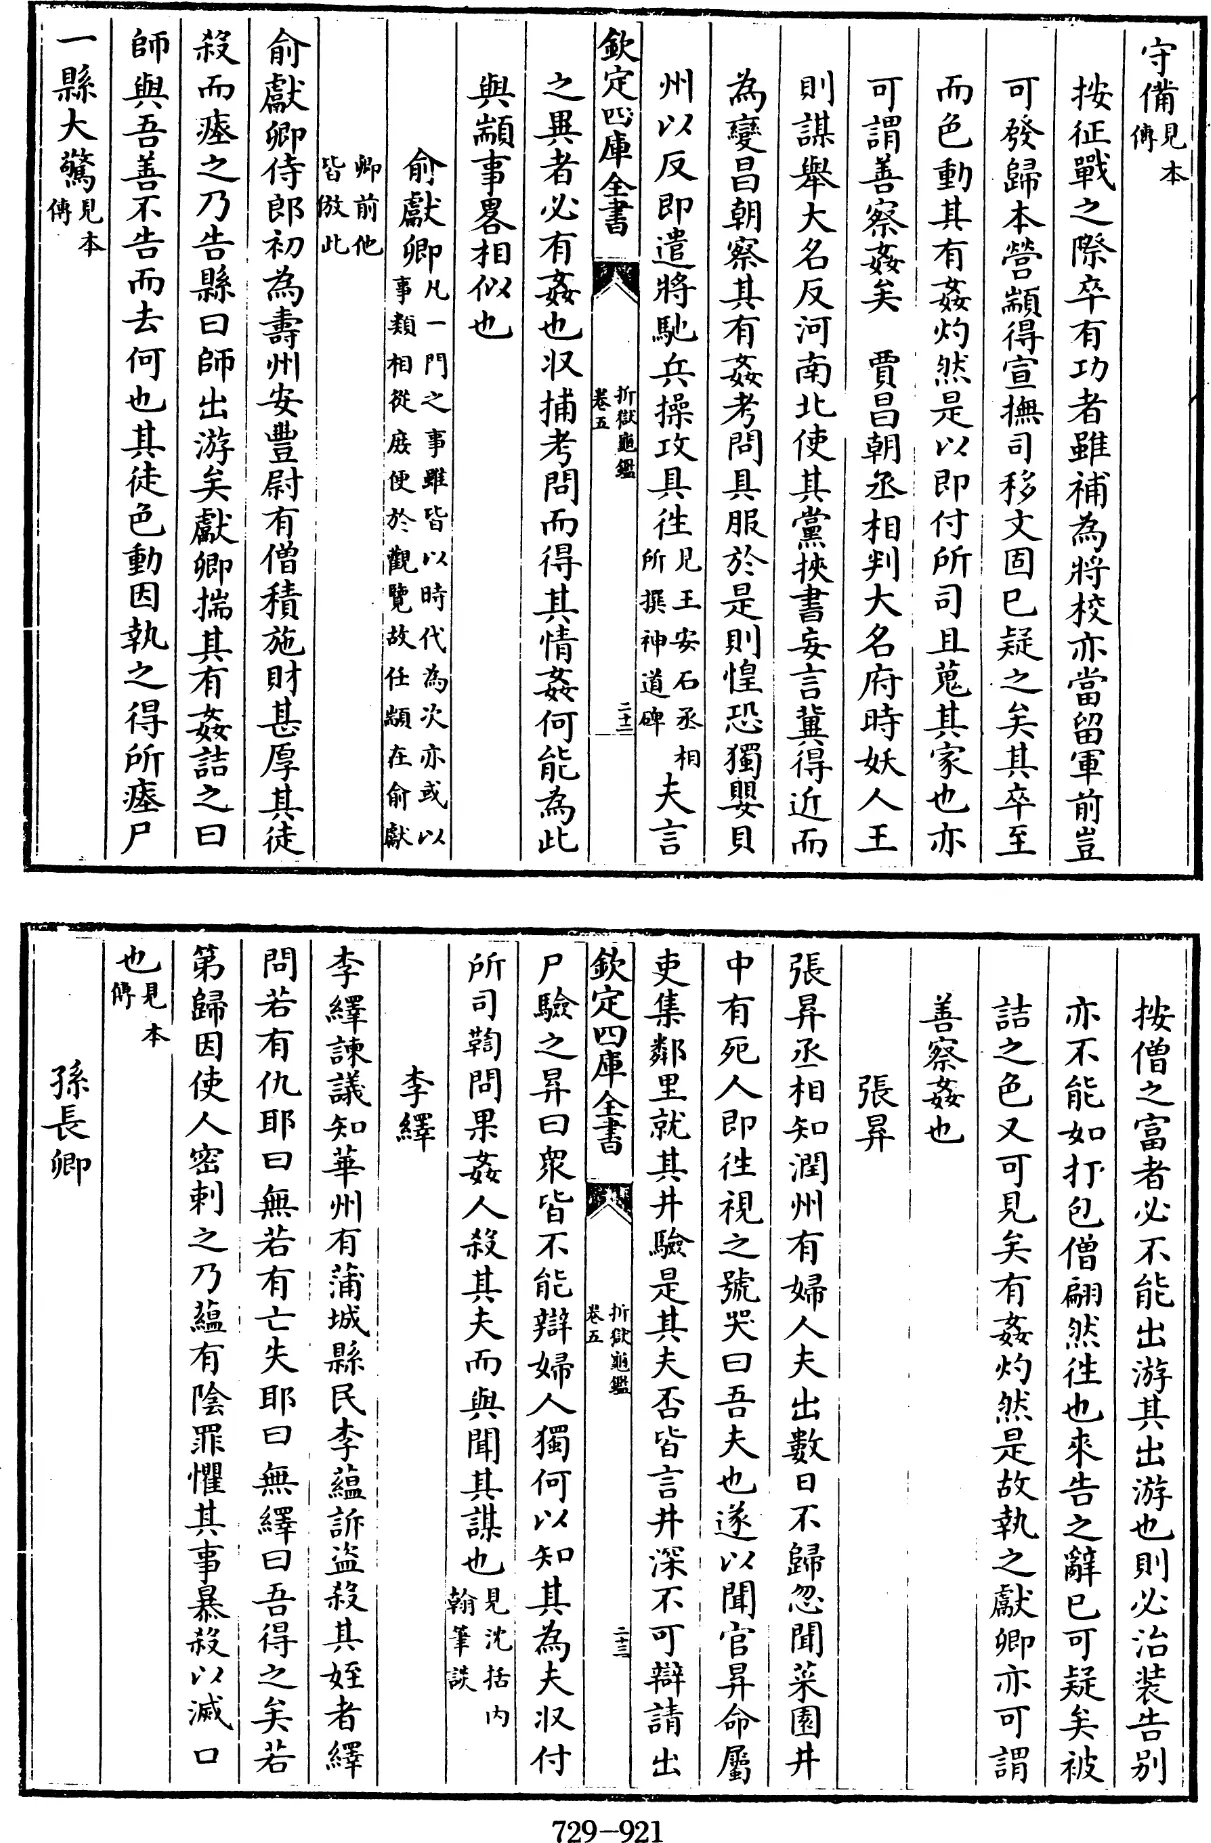 守備見本傳
按征戰之際卒有功者雖補為將校亦當留軍前豈
可發歸本營顓得宣撫司移文固已疑之矣其卒至
而色動其有姦灼然是以即付所司且蒐其家也亦
可謂善察姦矣　賈昌朝丞相判大名府時妖人王
則謀舉大名反河南北使其黨挾書妄言冀得近而
為變昌朝察其有姦考問具服於是則惶恐獨嬰貝
州以反即遣將馳兵操攻具徃見王安石丞相所撰神道碑夫言
欽定四庫全書　折獄龜鑑卷五　二十二
之異者必有姦也収捕考問而得其情姦何能為此
與顓事畧相似也
俞獻卿凡一門之事雖皆以時代為次亦或以事類相從庶便於觀覽故任顓在俞獻
卿前他皆倣此
俞獻卿侍郎初為壽州安豐尉有僧積施財甚厚其徒
殺而瘞之乃告縣曰師出游矣獻卿揣其有姦詰之曰
師與吾善不告而去何也其徒色動因執之得所瘞尸
一縣大驚見本傳
按僧之富者必不能出游其出游也則必治装告别
亦不能如打包僧翩然徃也來告之辭已可疑矣被
詰之色又可見矣有姦灼然是故執之獻卿亦可謂
善察姦也
張昇
張昇丞相知潤州有婦人夫出數日不歸忽聞菜園井
中有死人即徃視之號哭曰吾夫也遂以聞官昇命屬
吏集鄰里就其井驗是其夫否皆言井深不可辯請出
欽定四庫全書　折獄龜鑑卷五　二十三
尸驗之昇曰衆皆不能辯婦人獨何以知其為夫収付
所司鞫問果姦人殺其夫而與聞其謀也見沈括内翰筆談
李繹
李繹諫議知華州有蒲城縣民李藴訴盜殺其姪者繹
問若有仇耶曰無若有亡失耶曰無繹曰吾得之矣若
第歸因使人密刺之乃藴有陰罪懼其事暴殺以滅口
也見本傳
孫長卿
729-921